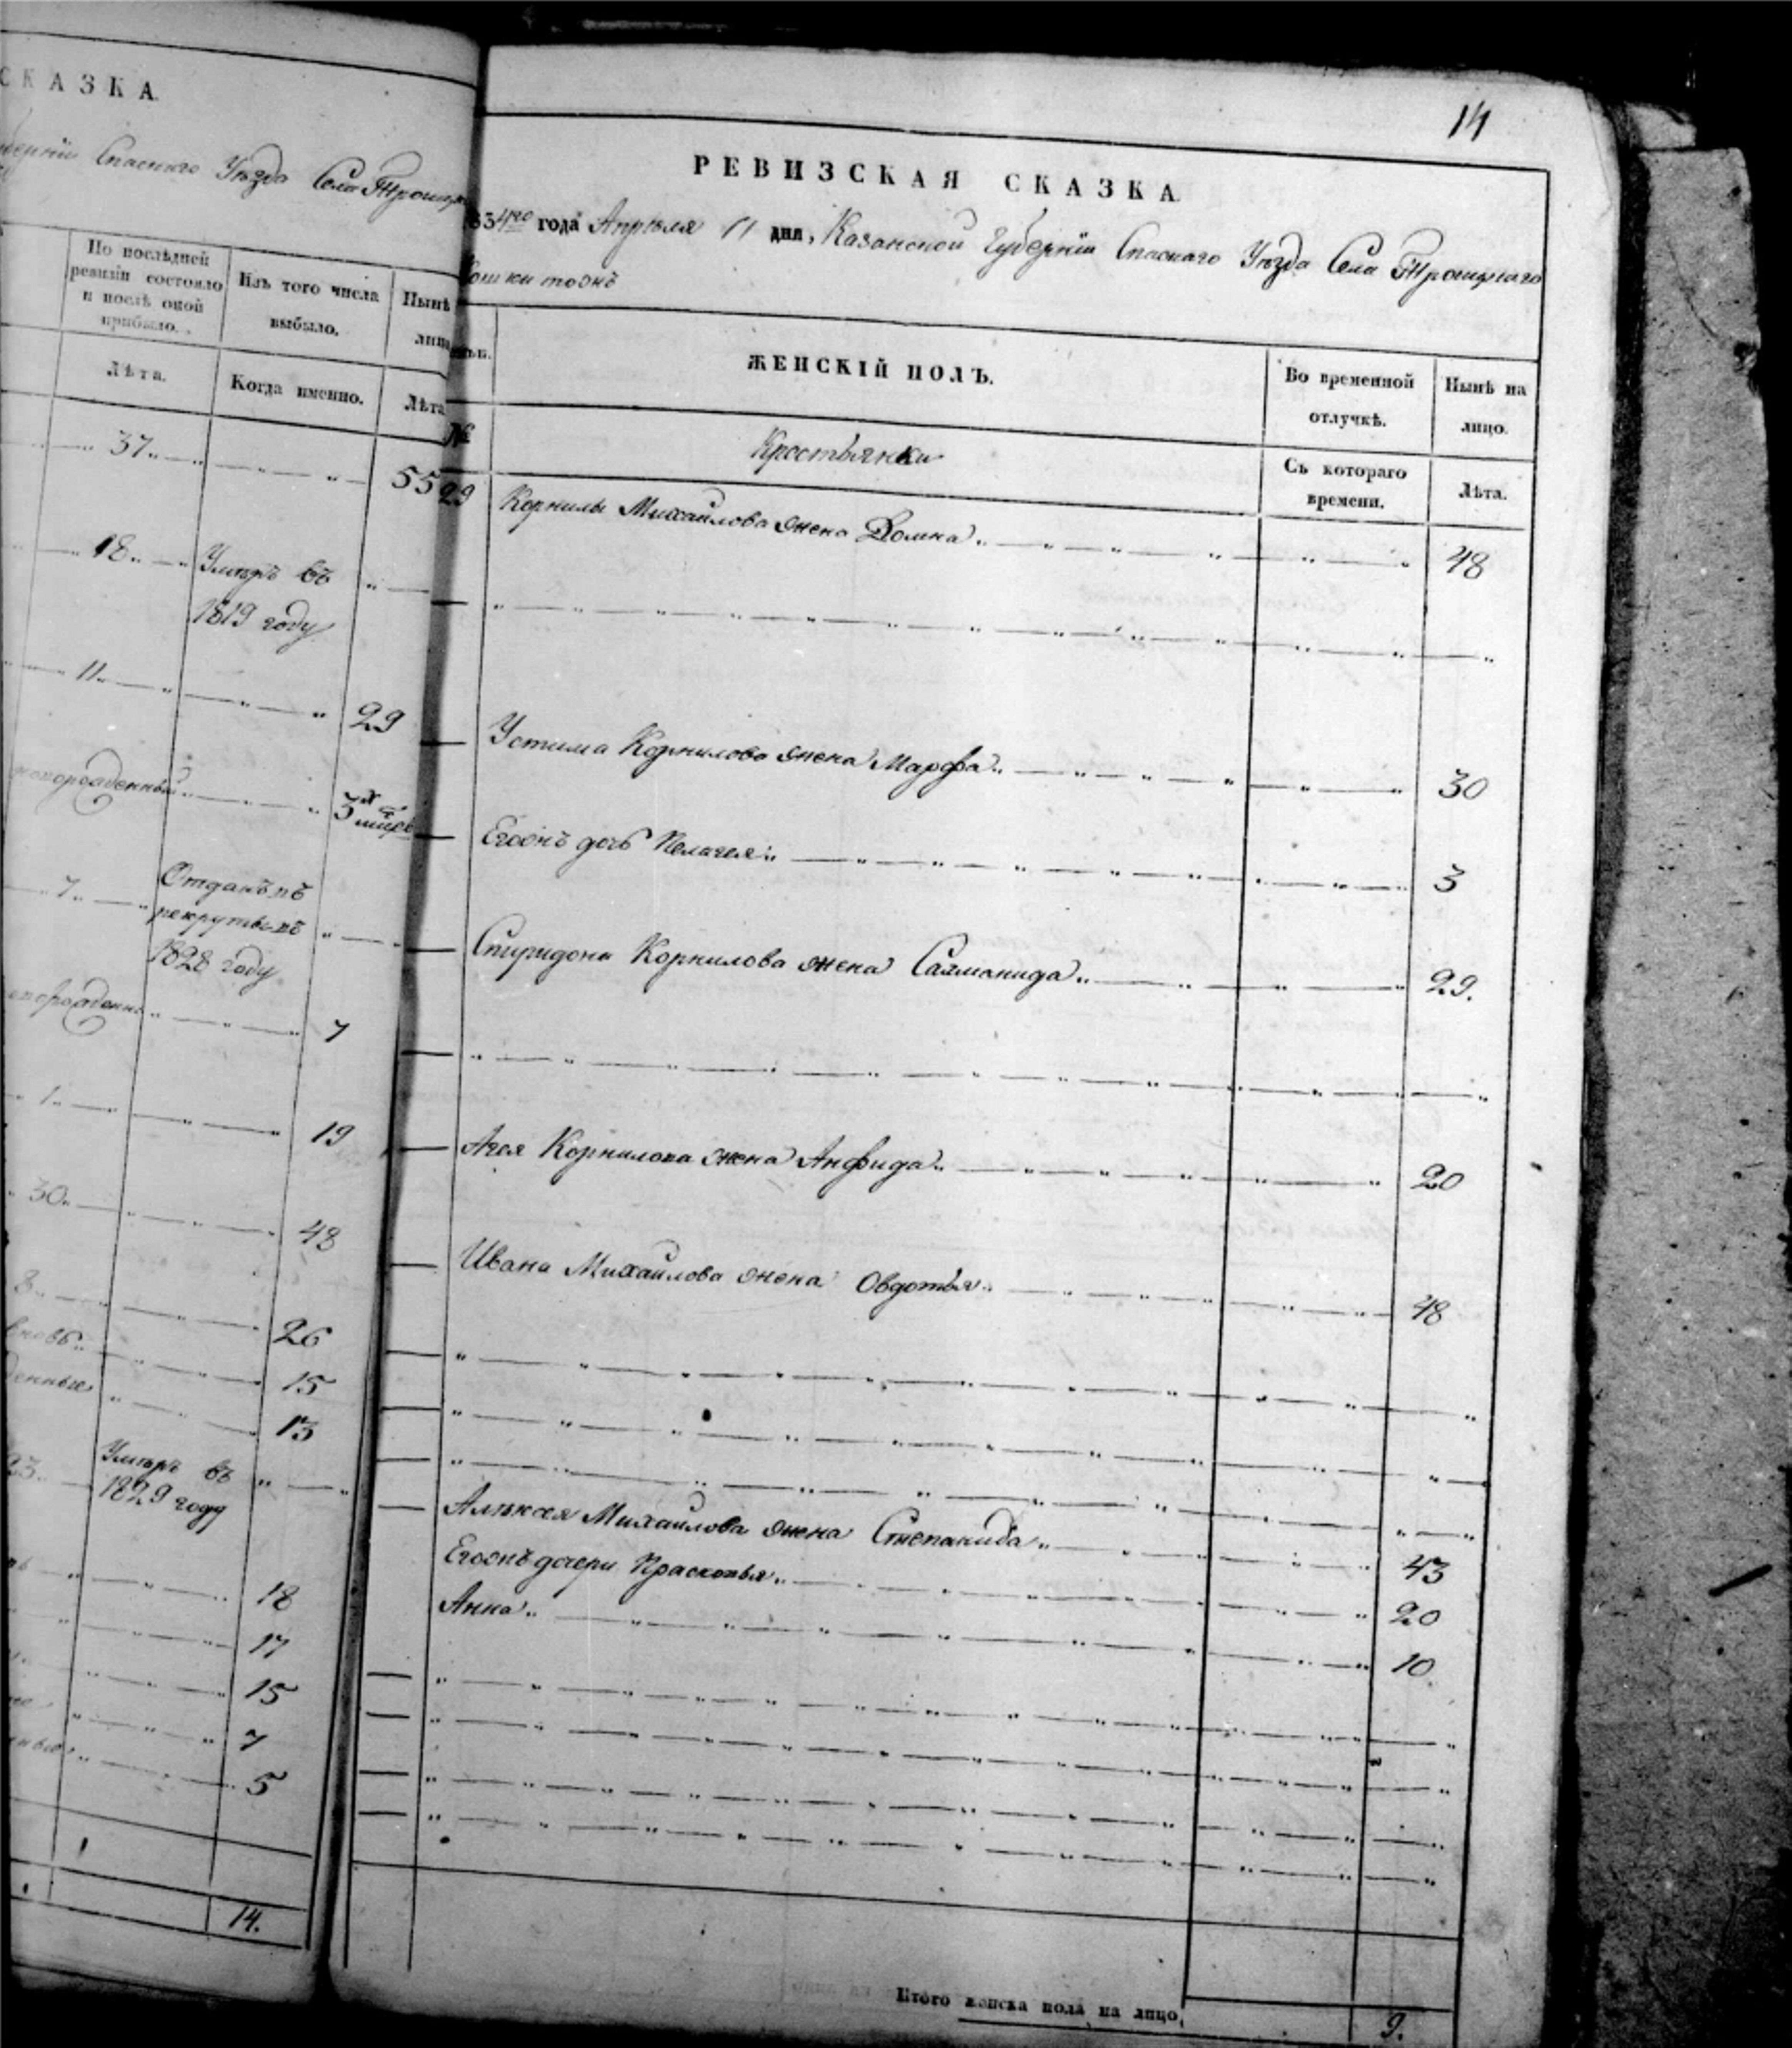 СКАЗКА.
Спаскаго Уѣзда Села Троицк
По послѣдней
ревизіи состояло
и послѣ оной
прибыло.
Изъ того числа
выбыло.
Нынѣ
лицо
Лѣта.
Когда именно.
Лѣта
37
55
18 Умеръ въ
1819 году
11
29
7 Отданъ въ
рекруты въ
1828 году
7
1
19
30
48
8
26
вновь
15
13
23 Умеръ въ
1829 году
18
17
15
7
5
1
14.
14
РЕВИЗСКАЯ СКАЗКА
834го года Апрѣля 11 дня, Казанской Губерніи Спаскаго Уѣзда Села Троицкаго
ЖЕНСКІЙ ПОЛЪ.
Во временной
отлучкѣ.
Нынѣ на
лицо.
№
Крестьянки
Съ котораго
времени.
Лѣта.
29 Корнилы Михайлова жена Домна 48
Устима Корнилова жена Марфа 30
Егоонъ дочь Пелагея 3
Спиридона Корнилова жена Саломанида 29.
Агея Корнилова жена Анфида 20
Ивана Михайлова жена Овдотья 48
Алѣксея Михайлова жена Степанида 43
Егоонъ дочери Прасковья 20
Анна 10
Итого женска пола на лицо 9.